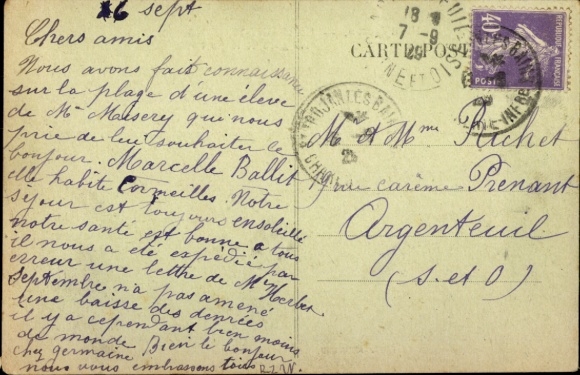 6 sept
Chers amis
Nous avons fait connaissance
sur la plage d'une élève
de Mr Maserey qui nous
prie de lui souhaiter le
bonjour. Marcelle Ballit
elle habite Cormeilles. Notre
séjour est toujours ensoleillé
notre santé est bonne a tous
il nous a été expédié par
erreur une lettre de Mr Herbet
Septembre n'a pas amené
une baisse des denrées
il y a cependant bien moins
de monde Bien le bonjour
chez germaine
nous vous embrassons tous
CARTE POSTALE
18
7-9
29
SEINE ET OISE
ST GEORGES
40c
REPUBLIQUE FRANÇAISE
POSTES
M et Mme Richet
rue carème Prenant
Argenteuil
(S-et O)